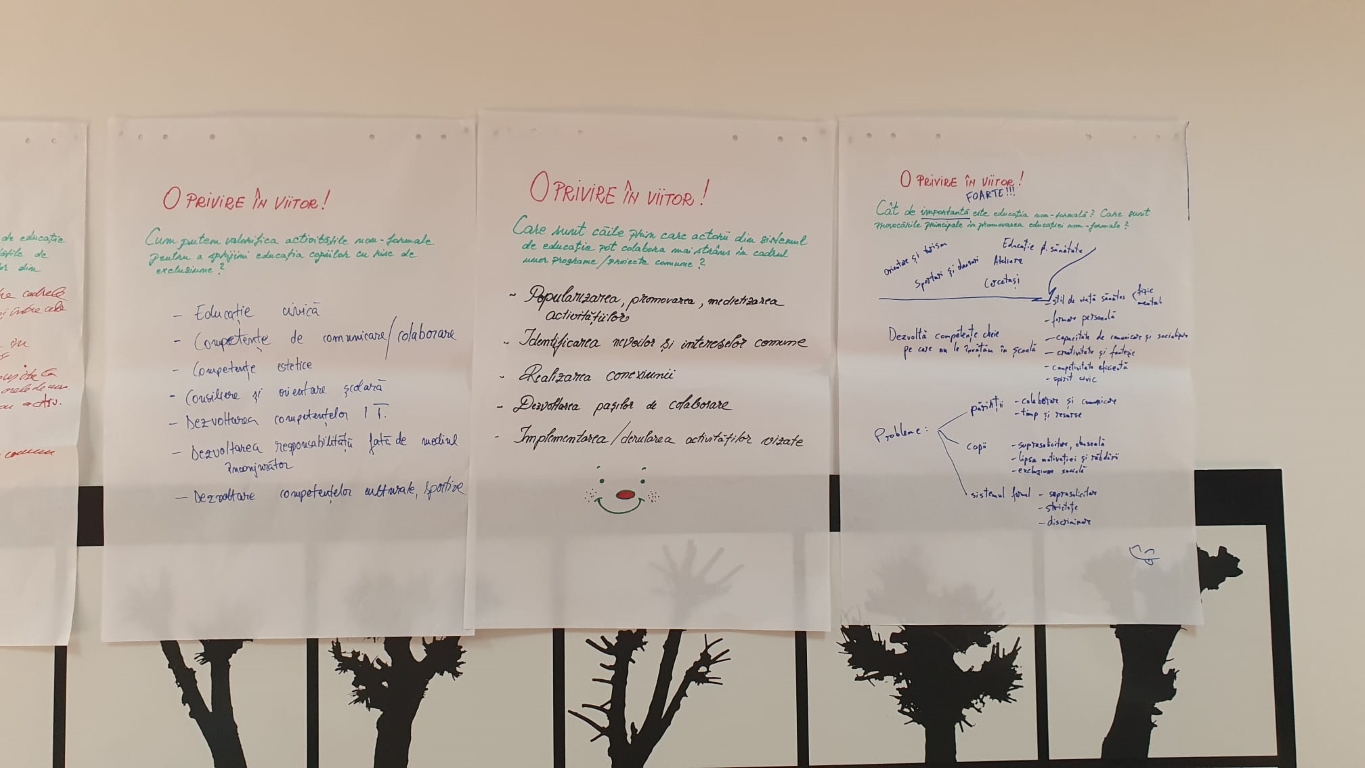 de educație
din
cadrele
în
activ.
comun
O PRIVIRE ÎN VIITOR!
Cum putem valorifica activitățile non-formale
pentru a sprijini educația copiilor cu risc de
excluziune?
- Educație civică
- Competențe de comunicare/colaborare
- Competențe estetice
- Consiliere și orientare școlară
- Dezvoltarea competențelor IT.
- Dezvoltarea responsabilității față de mediul
înconjurător
- Dezvoltare competențelor culturale, sportive
O PRIVIRE ÎN VIITOR!
Care sunt căile prin care actorii din sistemul
de educația pot colabora mai strâns în cadrul
unor programe/proiecte comune?
- Popularizarea, promovarea, mediatizarea
activităților
- Identificarea nevoilor și intereselor comune
- Realizarea conexiunii
- Dezvoltarea pașilor de colaborare
- Implementarea/derularea activităților vizate
O PRIVIRE ÎN VIITOR!
FOARTE!!!
Cât de importantă este educația non-formală? Care sunt
provocările principale în promovarea educației non-formale?
Orientare și turism
Sporturi și dansuri
Educație pt. sănătate
Ateliere
Cercetași
- stil de viață sănătos
fizic
mental
- formare personală
Dezvoltă competențe cheie
pe care nu le învățăm în școală
- capacitate de comunicare și socializare
- creativitate și fantezie
- competitivitate eficientă
- spirit civic
Probleme:
părinții - colaborare și comunicare
- timp și resurse
copii - suprasolicitare, oboseală
- lipsa motivației și răbdării
- excluziune socială
sistemul formal - suprasolicitare
- strictețe
- discriminare